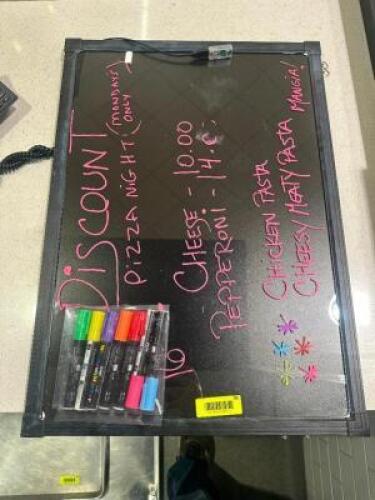 DISCOUNT
PIZZA NIGHT (MONDAYS
ONLY)
CHEESE - 10.00
PEPPERONI - 14.0
CHICKEN PASTA
CHEESY/MEATY PASTA MANGIA!